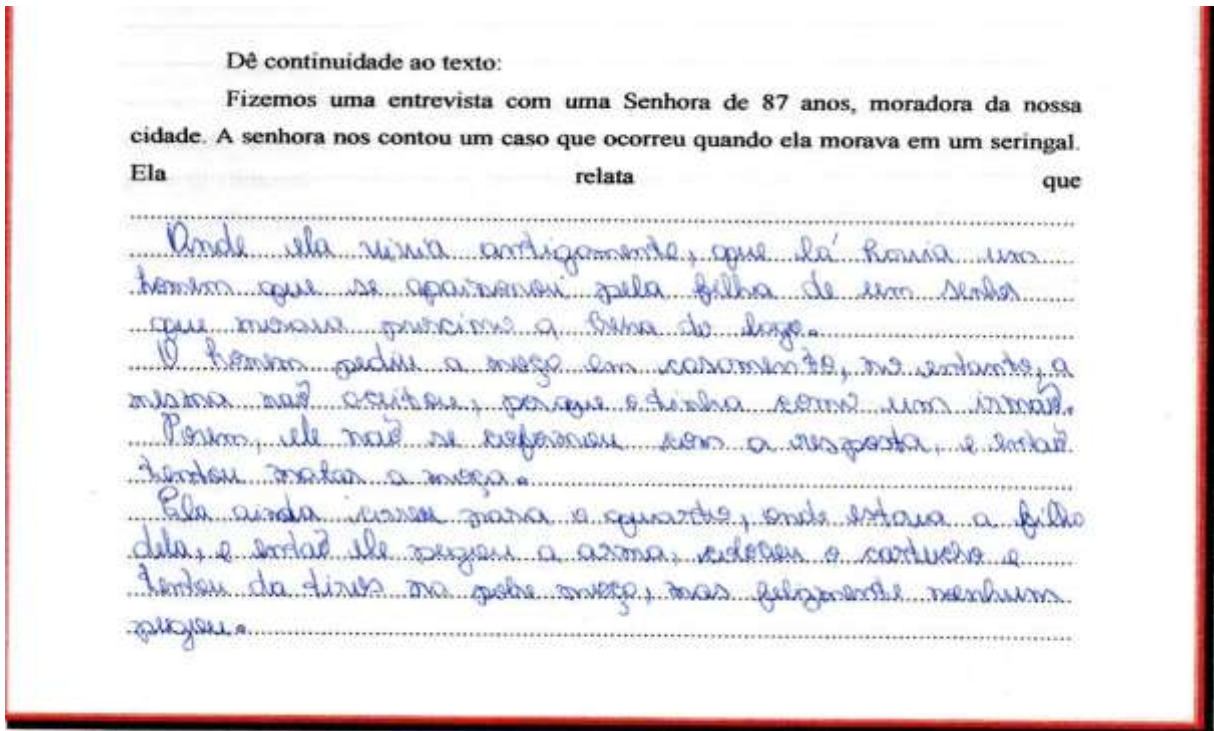 Dê continuidade ao texto:
Fizemos uma entrevista com uma Senhora de 87 anos, moradora da nossa
cidade. A senhora nos contou um caso que ocorreu quando ela morava em um seringal.
Ela relata que
Onde ela vivia antigamente, que lá havia um
homem que se apaixonou pela filha de um senhor
que morava proximo a Beira do lago.
O homem pediu a moça em casamento, no entanto, a
mesma não aceitou, porque o tinha como um irmão.
Porem, ele não se com a resposta, e então
tentou matar a moça.
Ela ainda correu para o quarto, onde estava a filho
dela, e então ele pegou a arma, colocou o cartucho e
tentou da tiros na pobre moça, mas felizmente nenhum
pegou.